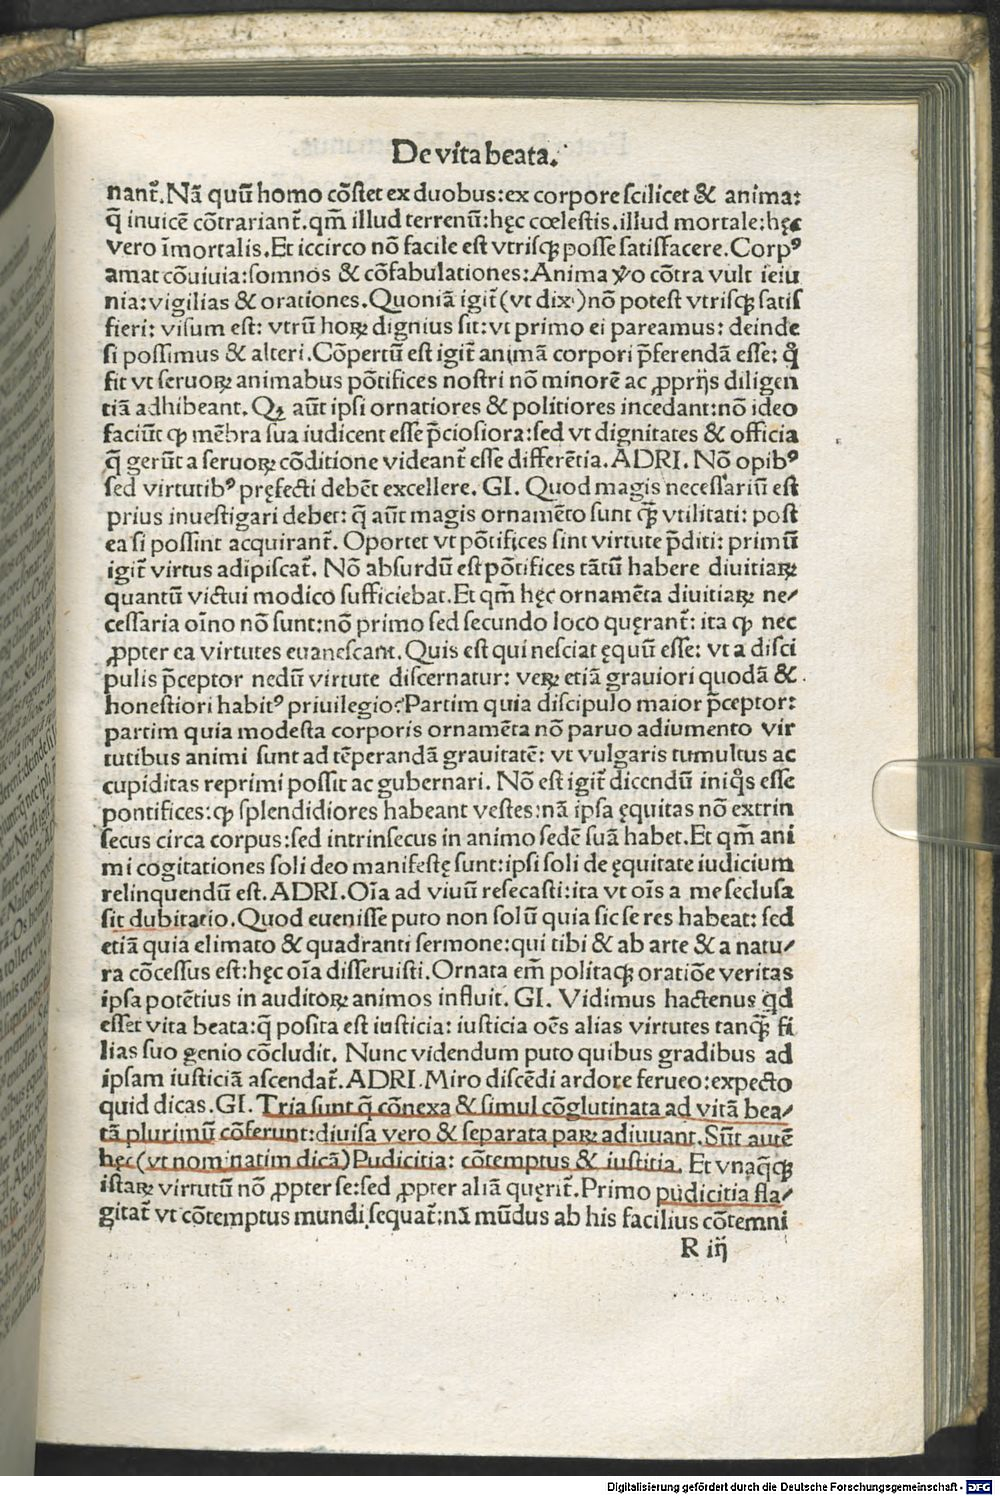 De vita beata.
nant̄. Nã quū homo cõstet ex duobus: ex corpore scilicet & anima:
q̄ inuicē cõtrariant̄. qm̄ illud terrenū: hęc cœlestis. illud mortale: hęc
vero īmortalis. Et iccirco nõ facile est vtrisqꝫ posse satisfacere. Corpꝰ
amat cõuiuia: somnos & cõfabulationes: Anima ꝟo cõtra vult ieiu
nia: vigilias & orationes. Quoniã igit̄ (vt dixi) nõ potest vtrisqꝫ satis
fieri: visum est: vtrū hoꝝ dignius sit: vt primo ei pareamus: deinde
si possimus & alteri. Cõpertū est igit̄ animã corpori p̄ferendã esse: q̊
fit vt seruoꝝ animabus põtifices nostri nõ minorē ac ꝓprijs diligen
tiã adhibeant. Qꝫ aūt ipsi ornatiores & politiores incedant: nõ ideo
faciūt ꝙ mēbra sua iudicent esse p̄ciosiora: sed vt dignitates & officia
q̄ gerūt a seruoꝝ cõditione videant̄ esse differētia. ADRI. Nõ opibꝰ
sed virtutibꝰ pręfecti debēt excellere. GI. Quod magis necessariū est
prius inuestigari debet: q̄ aūt magis ornamēto sunt qꝫ̄ vtilitati: post
ea si possint acquirant̄. Oportet vt põtifices sint virtute p̄diti: primū
igit̄ virtus adipiscat̄. Nõ absurdū est põtifices tãtū habere diuitiaꝝ
quantū victui modico sufficiebat. Et qm̄ hęc ornamēta diuitiaꝝ ne⸗
cessaria oīno nõ sunt: nõ primo sed secundo loco quęrant̄: ita ꝙ nec
ꝓpter ea virtutes euanescant. Quis est qui nesciat ęquū esse: vt a disci
pulis p̄ceptor nedū virtute discernatur: veꝝ etiã grauiori quodã &
honestiori habitꝰ priuilegio? Partim quia discipulo maior p̄ceptor:
partim quia modesta corporis ornamēta nõ paruo adiumento vir
tutibus animi sunt ad tēperandã grauitatē: vt vulgaris tumultus ac
cupiditas reprimi possit ac gubernari. Nõ est igit̄ dicendū iniqͥs esse
pontifices: ꝙ splendidiores habeant vestes: nã ipsa ęquitas nõ extrin
secus circa corpus: sed intrinsecus in animo sedē suã habet. Et qm̄ ani
mi cogitationes soli deo manifestę sunt: ipsi soli de ęquitate iudicium
relinquendū est. ADRI. Oīa ad viuū resecasti: ita vt oīs a me seclusa
sit dubitatio. Quod euenisse puto non solū quia sic se res habeat: sed
etiã quia elimato & quadranti sermone: qui tibi & ab arte & a natu⸗
ra cõcessus est: hęc oīa disseruisti. Ornata em̄ politaqꝫ oratiõe veritas
ipsa potētius in auditoꝝ animos influit. GI. Vidimus hactenus qd
esset vita beata: q̄ posita est iusticia: iusticia oēs alias virtutes tanqꝫ̄ fi
lias suo genio cõcludit. Nunc videndum puto quibus gradibus ad
ipsam iusticiã ascendat̄. ADRI. Miro discēdi ardore ferueo: expecto
quid dicas. GI. Tria sunt q̄ cõnexa & simul cõglutinata ad vitã bea⸗
tã plurimū cõferunt: diuisa vero & separata paꝝ adiuuant. Sūt autē
hęc (vt nominatim dicã) Pudicitia: cõtemptus & iustitia. Et vnaq̄qꝫ
istaꝝ virtutū nõ ꝓpter se: sed ꝓpter aliã quęrit̄. Primo pudicitia fla⸗
gitat̄ vt cõtemptus mundi sequat̄: nã mūdus ab his facilius cõtemni
R iij
Digitalisierung gefördert durch die Deutsche Forschungsgemeinschaft - DFG